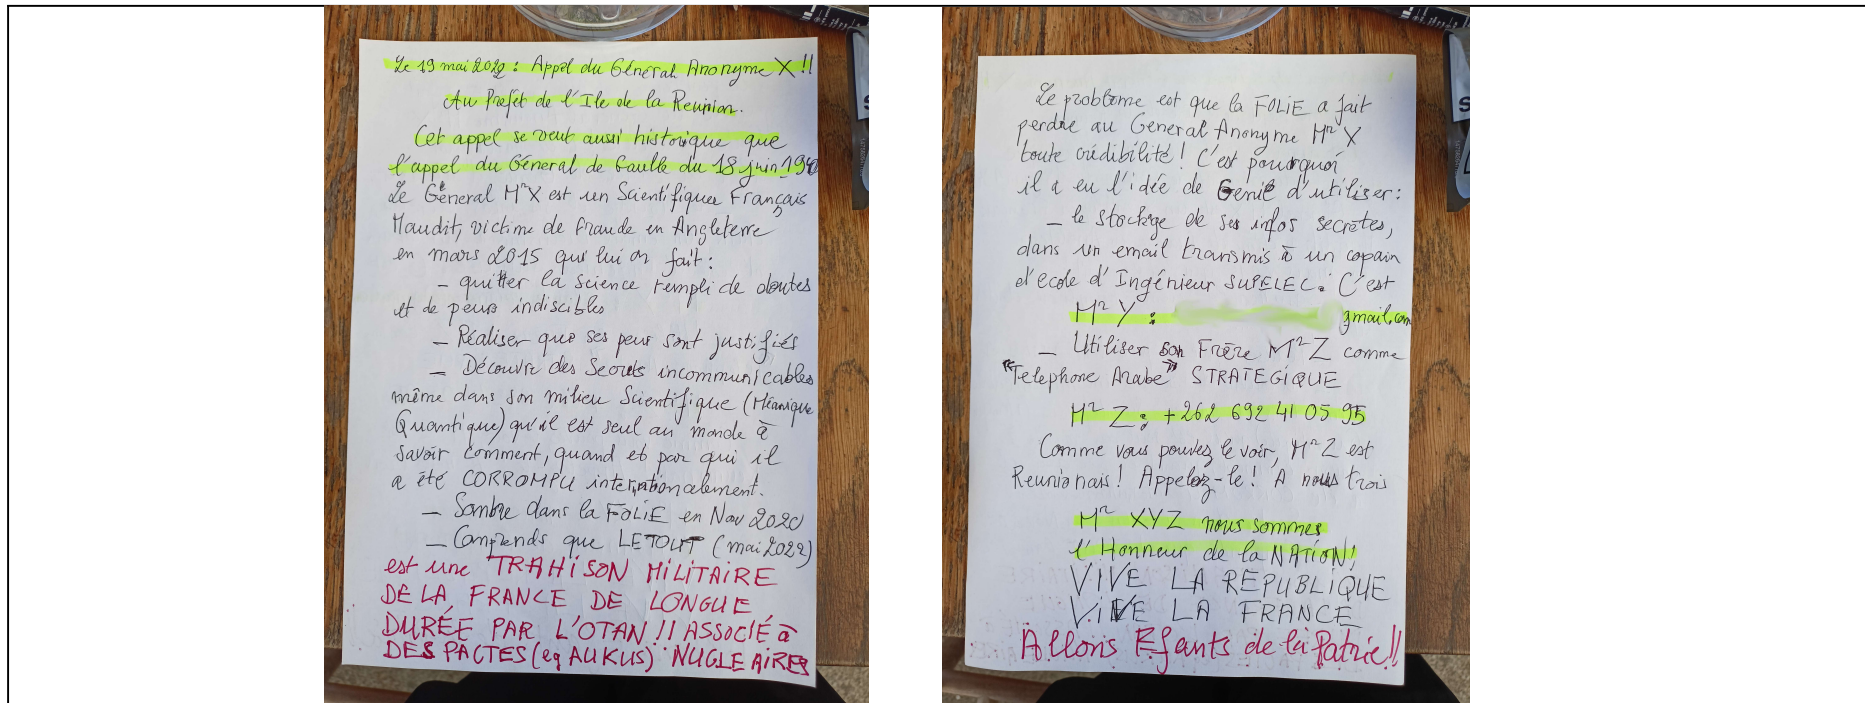 Le 19 mai 2022 : Appel du Général Anonyme X !!
Au Prefet de l'Ile de la Reunion.
Cet appel se veut aussi historique que
l'appel du Général de Gaulle du 18 juin 1940
Le Général M²X est un Scientifique Français
Maudit, victime de fraude en Angleterre
en mars 2015 qui lui a fait :
– quitter la science rempli de doutes
et de peurs indiscibles
– Réaliser que ses peur sont justifiés
– Découvre des Secrets incommunicables
même dans son milieu Scientifique (Mécanique
Quantique) qu'il est seul au monde à
savoir comment, quand et par qui il
a été CORROMPU intentionalement.
– Sombre dans la FOLIE en Nov 2020
– Comprends que LE TOUT (mai 2022)
est une TRAHISON MILITAIRE
DE LA FRANCE DE LONGUE
DURÉE PAR L'OTAN !! ASSOCIÉ à
DES PACTES (eg AUKUS) NUCLEAIRES
Le problème est que la FOLIE a fait
perdre au General Anonyme M²X
toute crédibilité ! C'est pourquoi
il a eu l'idée de Genie d'utiliser :
– le stockage de ses infos secrètes,
dans un email transmis à un copain
d'ecole d'Ingénieur SUPELEC. C'est
M² Y : gmail.com
– Utiliser son Frère M²Z comme
"Telephone Arabe" STRATEGIQUE
M² Z : +262 692 41 05 95
Comme vous pouvez le voir, M²Z est
Reunionais ! Appelez-le ! A nous trois
M² XYZ nous sommes
l'Honneur de la NATION !
VIVE LA REPUBLIQUE
VIVE LA FRANCE
Allons Efants de la Patrie !!